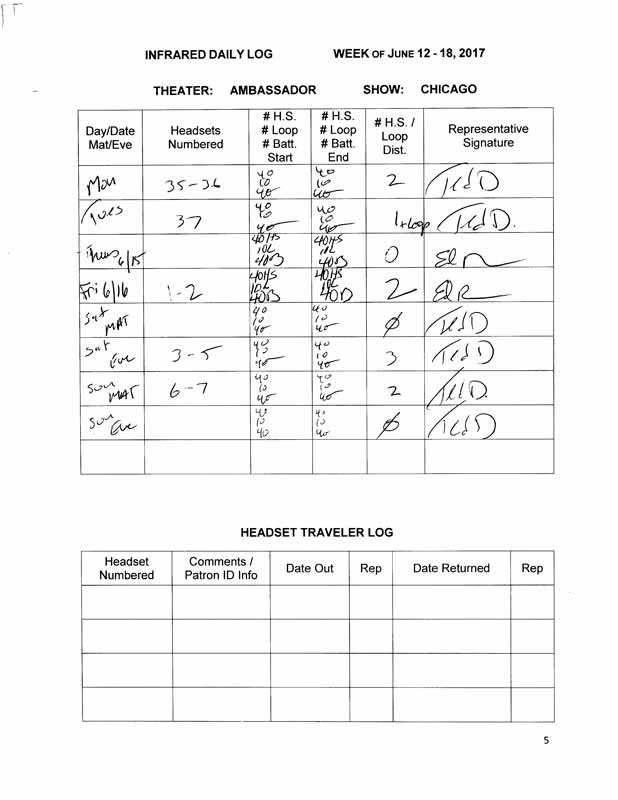 INFRARED DAILY LOG WEEK OF JUNE 12 - 18, 2017
THEATER: AMBASSADOR SHOW: CHICAGO
Day/Date Mat/Eve Headsets Numbered # H.S. # Loop # Batt. Start # H.S. # Loop # Batt. End # H.S. / Loop Dist. Representative Signature
Mon 35-36 40 10 40 40 10 40 2
Tues 37 40 10 40 40 10 40 1+loop
Thurs 6/15 40HS 10L 40B 40HS 10L 40B 0
Fri 6/16 1-2 40HS 10L 40B 40HS 10L 40B 2
Sat MAT 40 10 40 40 10 40 Ø
Sat Eve 3-5 40 10 40 40 10 40 3
Sun MAT 6-7 40 10 40 40 10 40 2
Sun Eve 40 10 40 40 10 40 Ø
HEADSET TRAVELER LOG
Headset Numbered Comments / Patron ID Info Date Out Rep Date Returned Rep
5